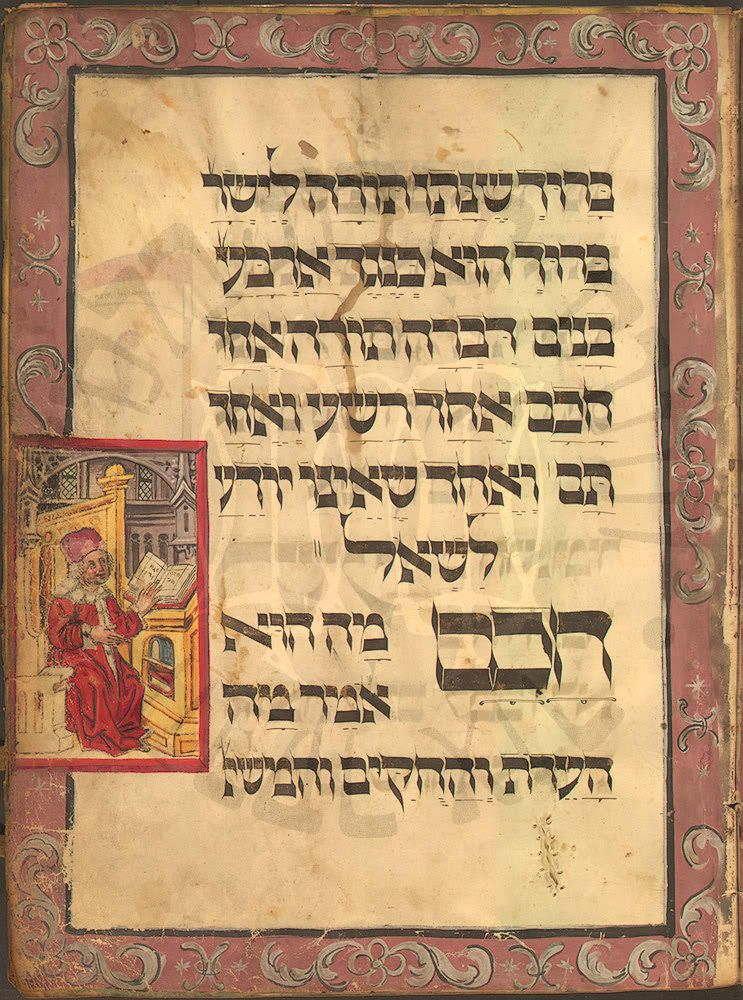 ברוך שנתן תורה לישר
ברוך הוא כנגד ארבע
בנים דברה תורה אחד
חכם אחד רשע ואחד
תם ואחד שאינו יודע
לשאל
חכם מה הוא
אומר מה
העדת והחקים